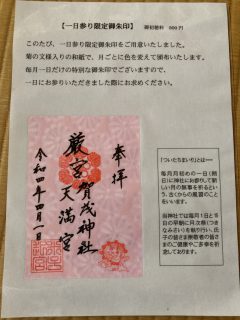 【一日参り限定御朱印】 御初穂料 500円
このたび、一日参り限定御朱印をご用意いたしました。
菊の文様入りの和紙で、月ごとに色を変えて頒布いたします。
毎月一日だけの特別な御朱印でございますので、
一日にお参りいただきました際にお求めください。
奉拝
厳宮賀茂神社
天満宮
令和四年四月一日
「ついたちまいり」とは―
毎月月初めの一日(朔
日)に神社にお参りして新
しい月の無事を祈るとい
う、古くからの風習のこと
をいいます。
当神社では毎月1日と15
日の早朝に月次祭(つき
なみさい)を執り行い、氏
子の皆さま崇敬者の皆さ
まのご健康やご多幸を祈
念しております。